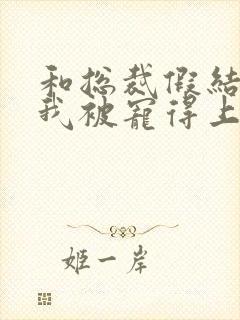 和总裁假结
我被宠得上
姬一岸